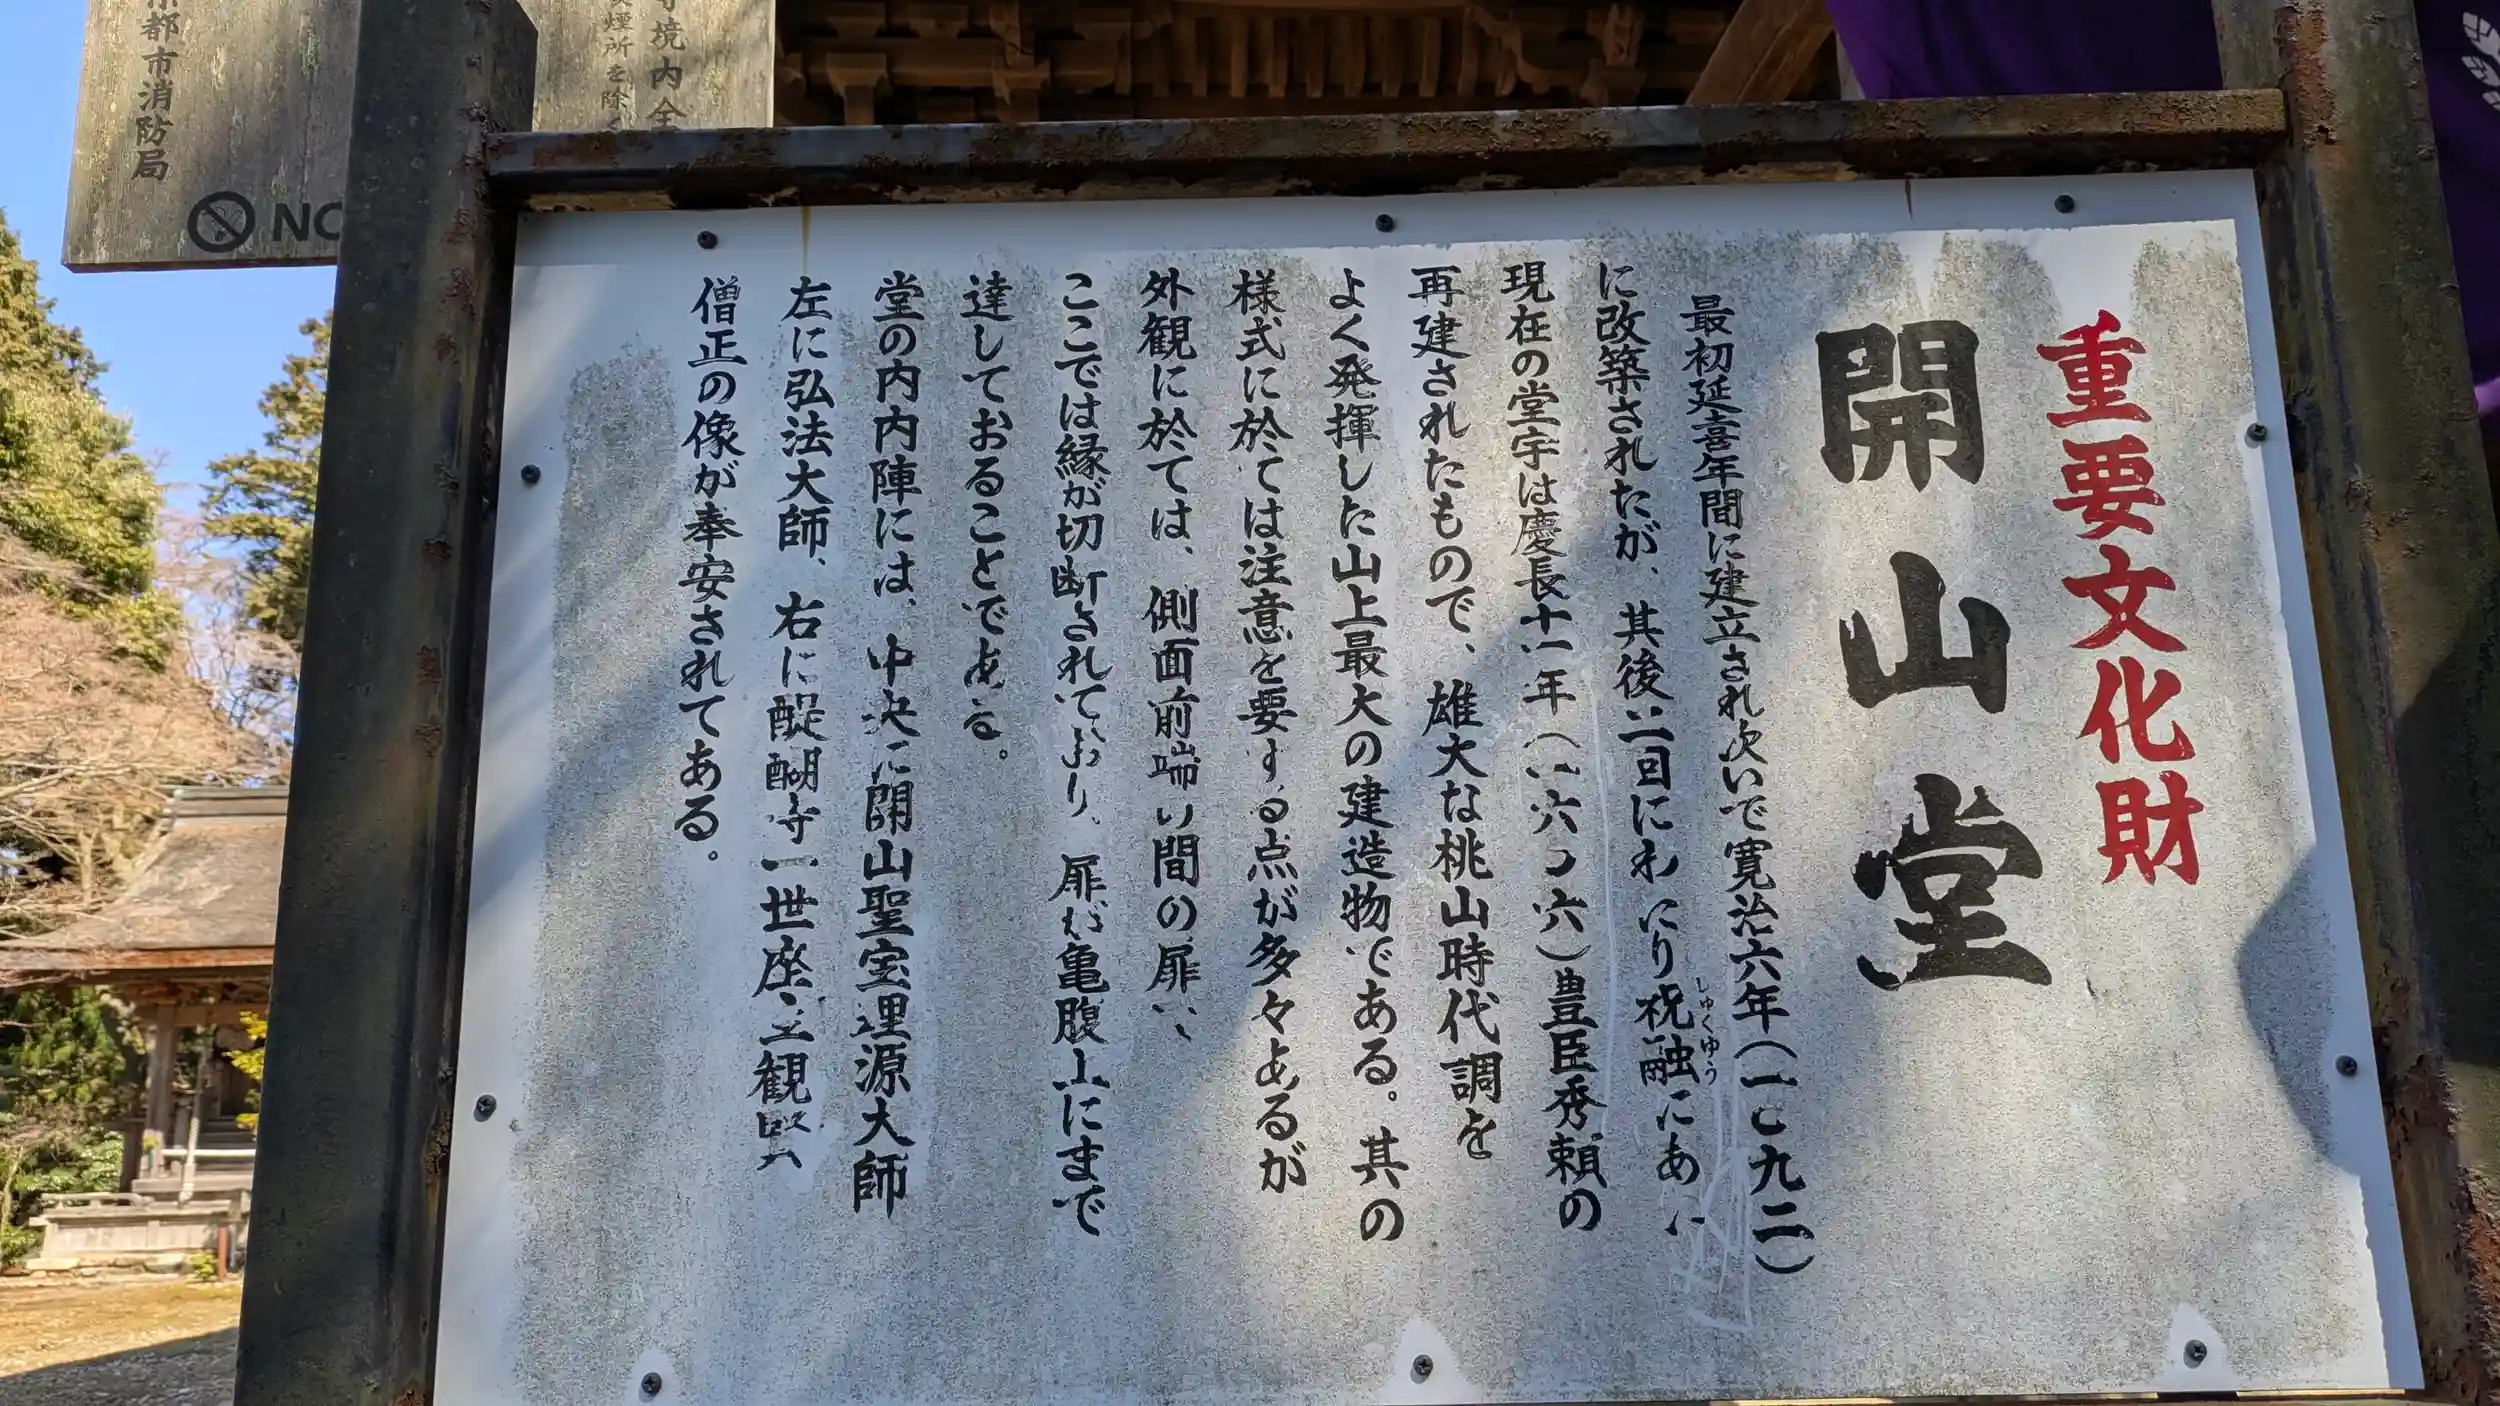 重要文化財
開山堂
最初延喜年間に建立され次いで寛治六年(一〇九二)
に改築されたが、其後二回にわたり祝融にあい
しゅくゆう
現在の堂宇は慶長十一年(一六〇六)豊臣秀頼の
再建されたもので、雄大な桃山時代調を
よく発揮した山上最大の建造物である。其の
様式に於ては注意を要する点が多々あるが
外観に於ては、側面前端の間の扉
ここでは縁が切断されており、扉が亀腹上にまで
達しておることである。
堂の内内陣には、中央に開山聖宝理源大師
左に弘法大師、右に醍醐寺一世座主観賢
僧正の像が奉安されてある。
寺境内全
喫煙所を除く
京都市消防局
NO